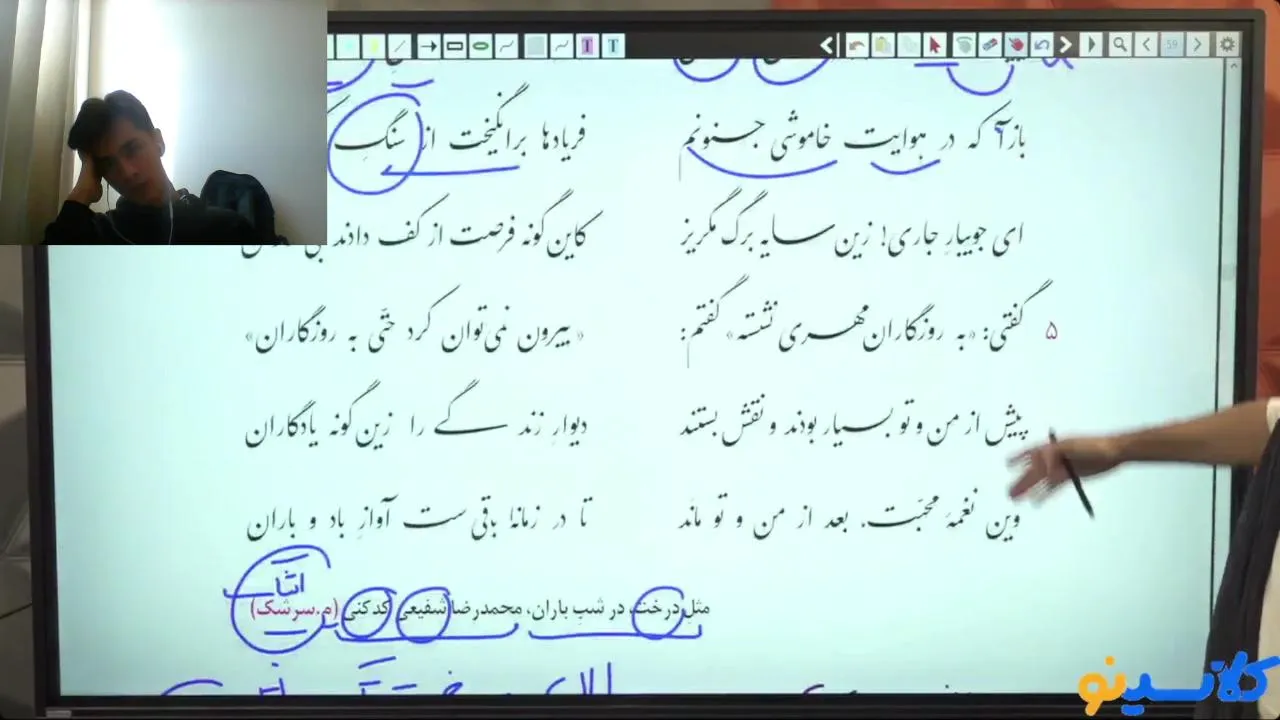 بازآ که در هوایت خاموشی جنونم فریادها برانگیخت از سنگِ
ای جویبارِ جاری! زین سایه برگ مگریز کاین گونه فرصت از کف دادند
۵ گفتی: «به روزگاران مهری نشسته» گفتم: «بیرون نمی‌توان کرد حتّی به روزگاران»
پیش از من و تو بسیار بودند و نقش بستند دیوارِ زندگی را زین گونه یادگاران
وین نغمهٔ محبّت، بعد از من و تو ماند تا در زمانه باقی‌ست آوازِ باد و باران
مثلِ درخت، در شبِ باران، محمدرضا شفیعی کدکنی (م.سرشک)
کلاسینو